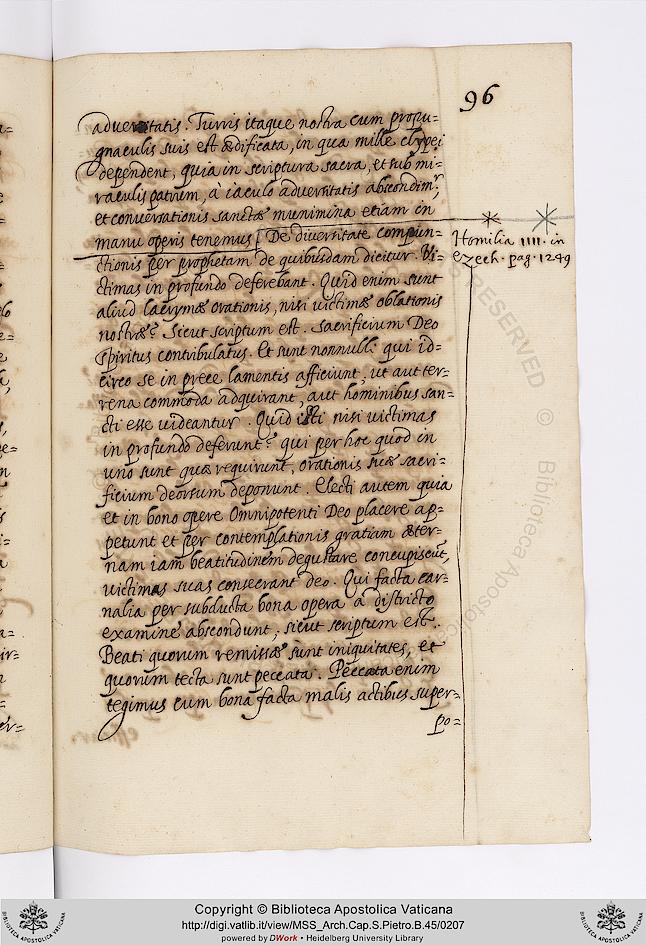 96
adversitatis. Turris itaque nostra cum propu=
gnaculis suis est ædificata, in qua mille clypei
dependent, quia in scriptura sacra, et sub mi=
raculis patrum, à iaculo adversitatis abscondim',
et conversationis sanctæ munimina etiam in
manu operis tenemus [De diversitate compun=
ctionis per prophetam de quibusdam dicitur. Vi=
ctimas in profundo deferebant. Quid enim sunt
aliud lacrymæ orationis, nisi victimæ oblationis
nostræ? Sicut scriptum est. Sacrificium Deo
spiritus contribulatus. Et sunt nonnulli qui id=
circo se in prece lamentis afficiunt, ut aut ter=
rena commoda adquirant, aut hominibus san=
cti esse uideantur. Quid isti nisi victimas
in profundo deferunt? qui per hoc quod in
uno sunt quæ requirunt, orationis suæ sacri=
ficium deorsum deponunt. Electi autem quia
et in bono opere Omnipotenti Deo placere ap=
petunt et per contemplationis gratiam æter=
nam iam beatitudinem degustare concupiscūt,
victimas suas consecrant deo. Qui facta car=
nalia per subducta bona opera à districto
examine abscondunt, sicut scriptum est.
Beati quorum remissæ sunt iniquitates, et
quorum tecta sunt peccata. Peccata enim
tegimus cum bona facta malis actibus super=
po=
Homilia IIII. in
Ezech. pag. 1249
RESERVED © Biblioteca Apostolica
Copyright © Biblioteca Apostolica Vaticana
http://digi.vatlib.it/view/MSS_Arch.Cap.S.Pietro.B.45/0207
powered by DWork • Heidelberg University Library